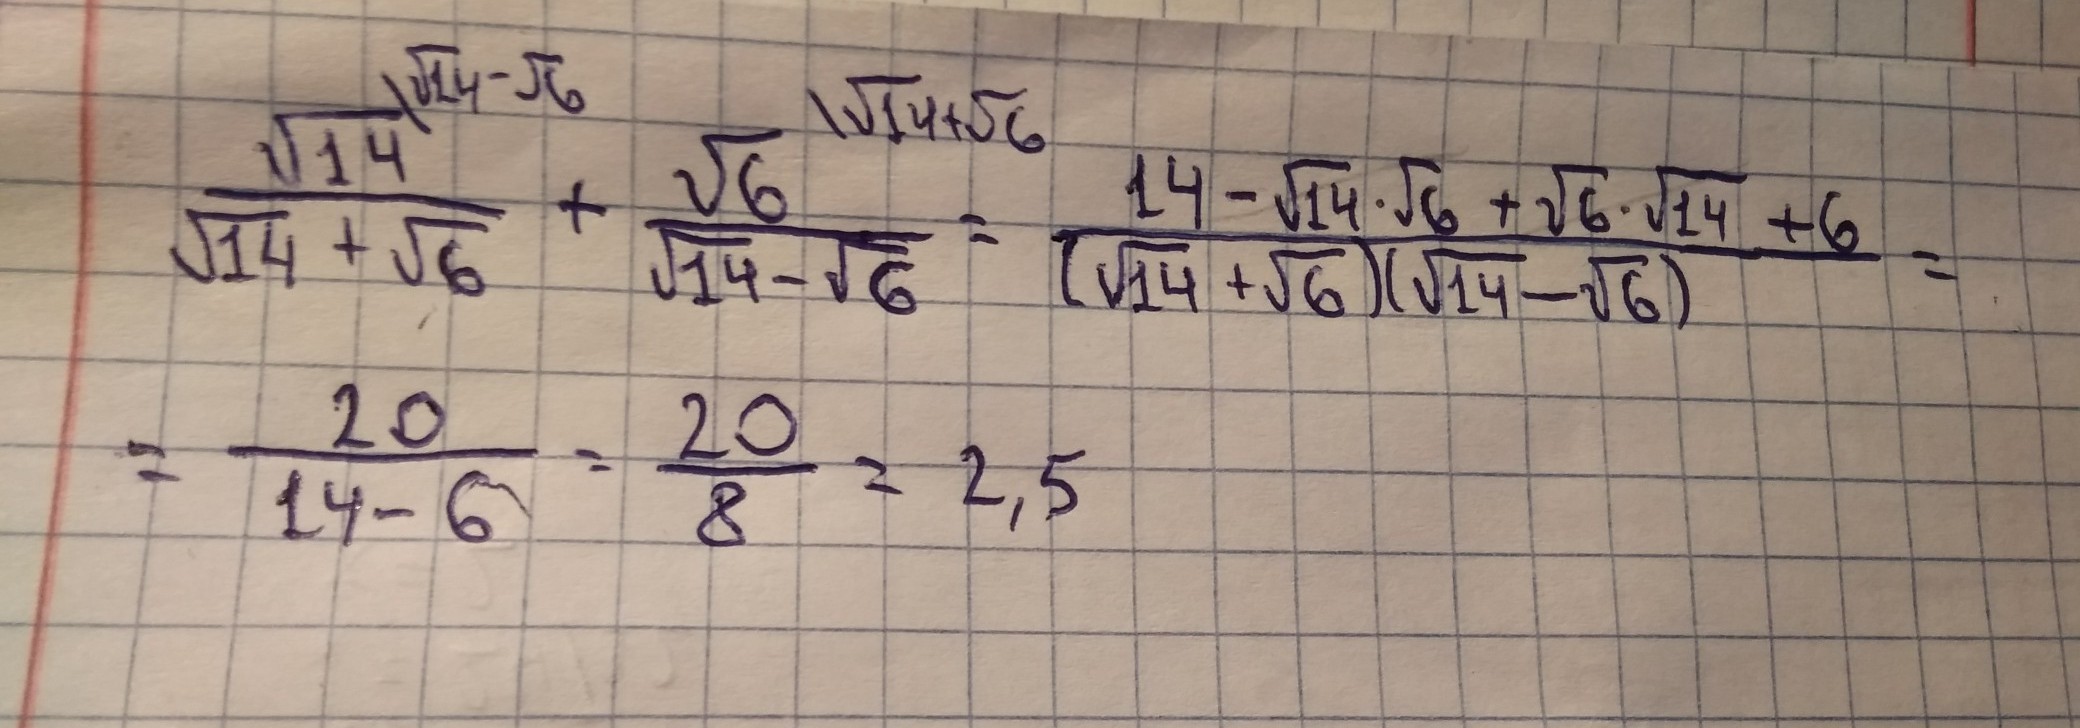 √14 \√14-√6 / √14 + √6 + √6 \√14+√6 / √14 - √6 = 14 - √14 · √6 + √6 · √14 + 6 / (√14 + √6)(√14 - √6) =
= 20 / 14 - 6 = 20 / 8 = 2,5